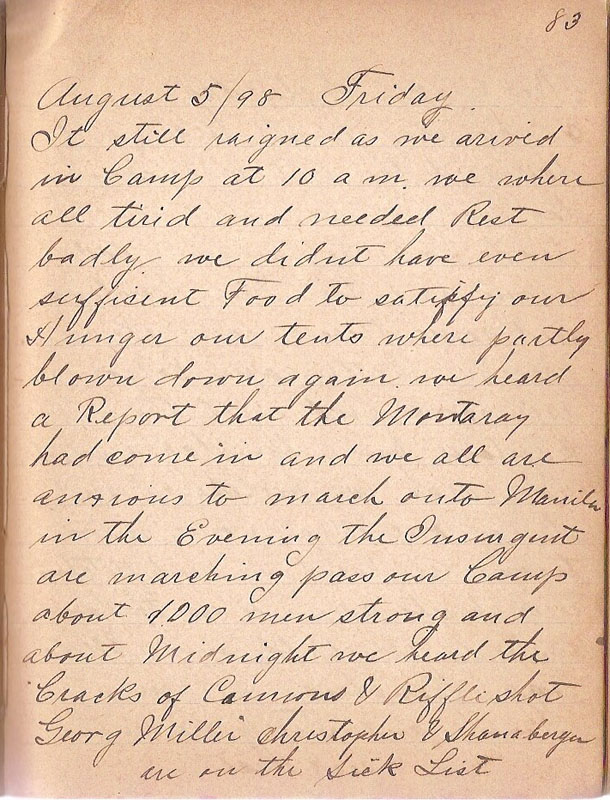 83
August 5/98 Friday.
It still raigned as we arived
in Camp at 10 a m. we where
all tirid and needed Rest
badly. we didnt have even
suffisent Food to satisfy our
Hunger our tents where partly
blown down again. we heard
a Report that the Montaray
had come in and we all are
anxious to march onto Manila
in the Evening the Insurgent
are marching pass our Camp
about 1000 men strong and
about Midnight we heard the
Cracks of Cannons & Riffle shot
Georg Miller Christopher & Shanaberger
are on the Sick List